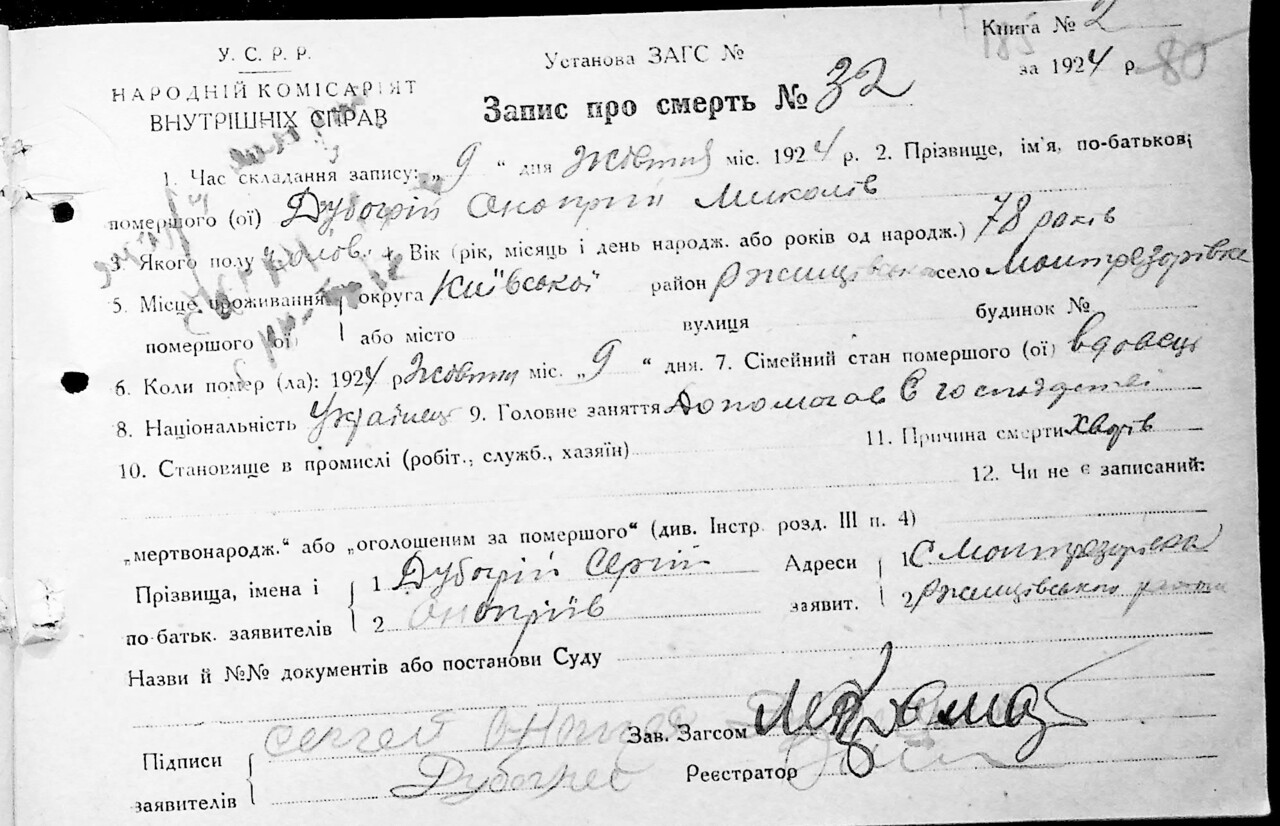 Книга № 2
У. С. Р. Р.
Установа ЗАГС №
за 1924 р. 80
НАРОДНІЙ КОМІСАРІЯТ
ВНУТРІШНІХ СПРАВ
Запис про смерть № 32
1. Час складання запису: „ 9 “ дня Жовтня міс. 1924 р. 2. Прізвище, ім'я, по-батькові
помершого (ої) Дубогрій Оноприй Миколів
3. Якого полу чолов. 4 Вік (рік, місяць і день народж. або років од народж.) 78 років
5. Місце проживання округа Київської район Ржищівська село Монтрезорівка
помершого (ої) або місто вулиця будинок №
6. Коли помер (ла): 1924 р Жовтня міс. „ 9 “ дня. 7. Сімейний стан помершого (ої) вдовець
8. Національність Українець 9. Головне заняття Допомогав в господарстві
10. Становище в промислі (робіт., служб., хазяїн) 11. Причина смерти хворів
12. Чи не є записаний:
„мертвонародж.“ або „оголошеним за помершого“ (див. Інстр. розд. III п. 4)
Прізвища, імена і 1 Дубогрій Сергій Адреси 1 С Монтрезорівка
по-батьк. заявителів 2 Оноприїв заявит. 2 Ржищівського
Назви й №№ документів або постанови Суду
Підписи Сергей Зав. Загсом
заявителів Реєстратор